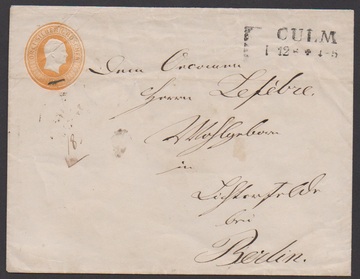 CULM
Dem Oeconom
Herrn Lefébre.
Wohlgeborn
in
Lichterfelde
bei
Berlin.